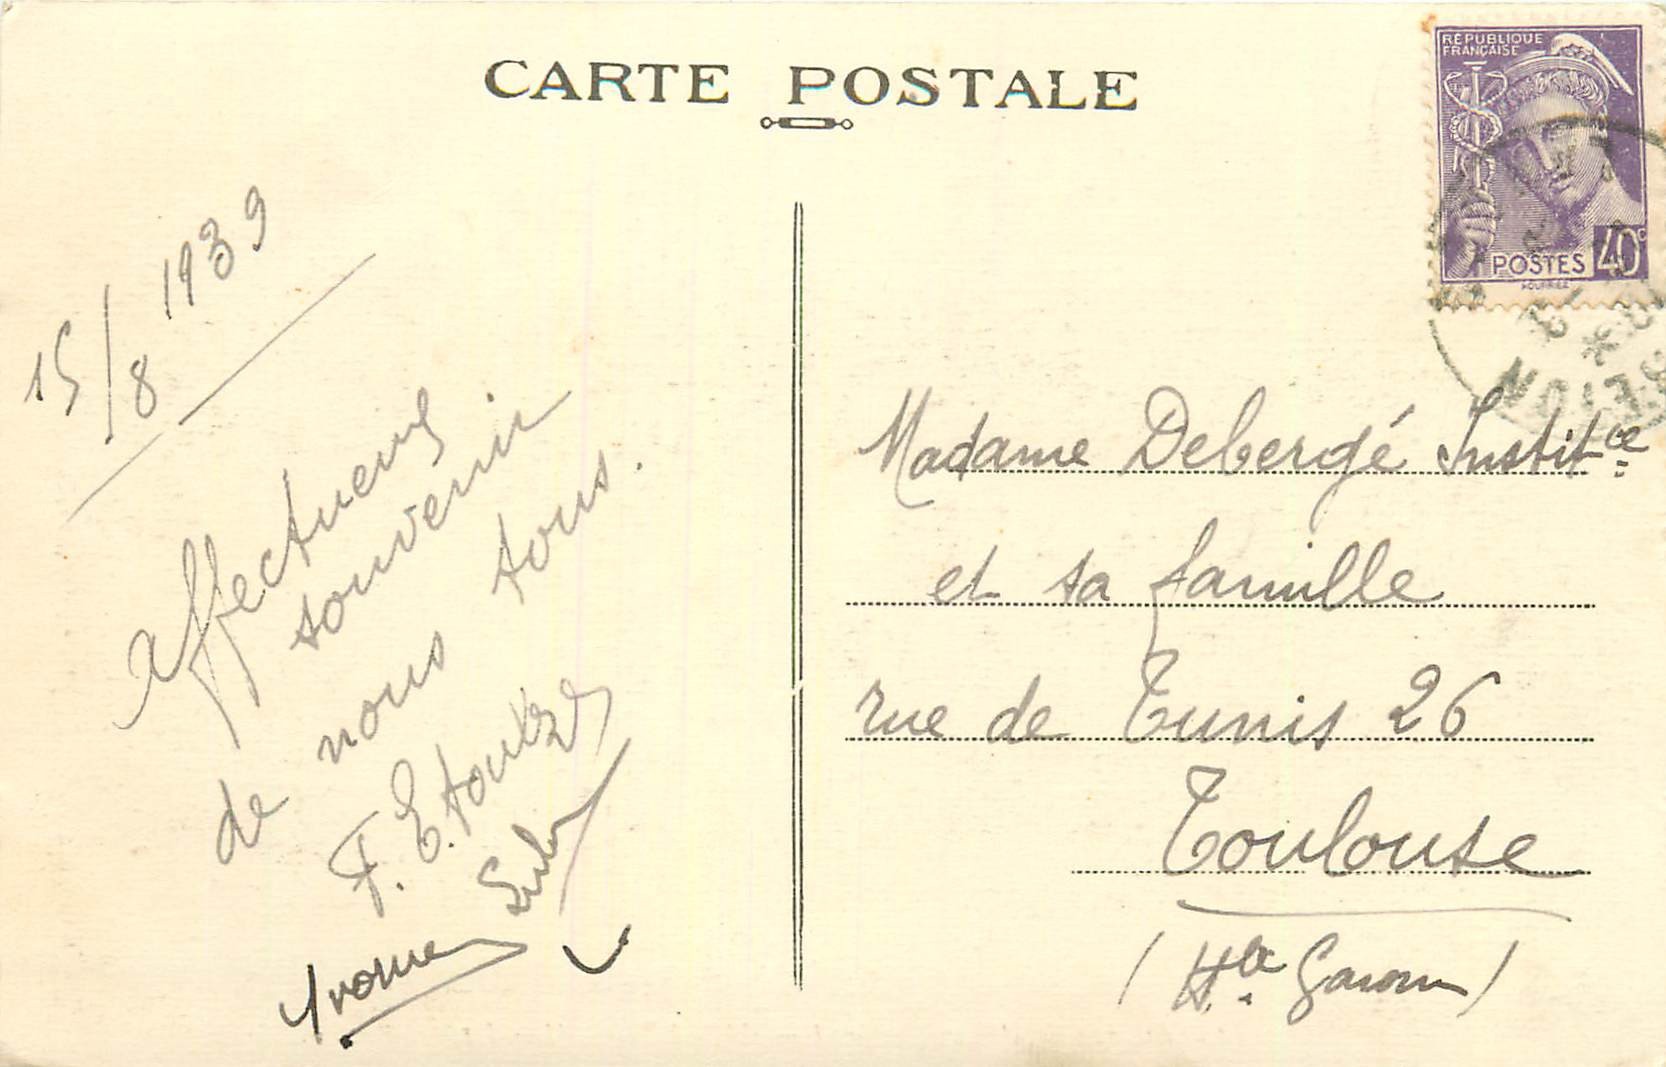 CARTE POSTALE
RÉPUBLIQUE
FRANÇAISE
POSTES 40c
15/8 1939
Affectueux
souvenir
de nous tous.
F.
Yvonne
Madame Debergé Instit.ce
et sa famille
rue de Tunis 26
Toulouse
(Hte Garonne)